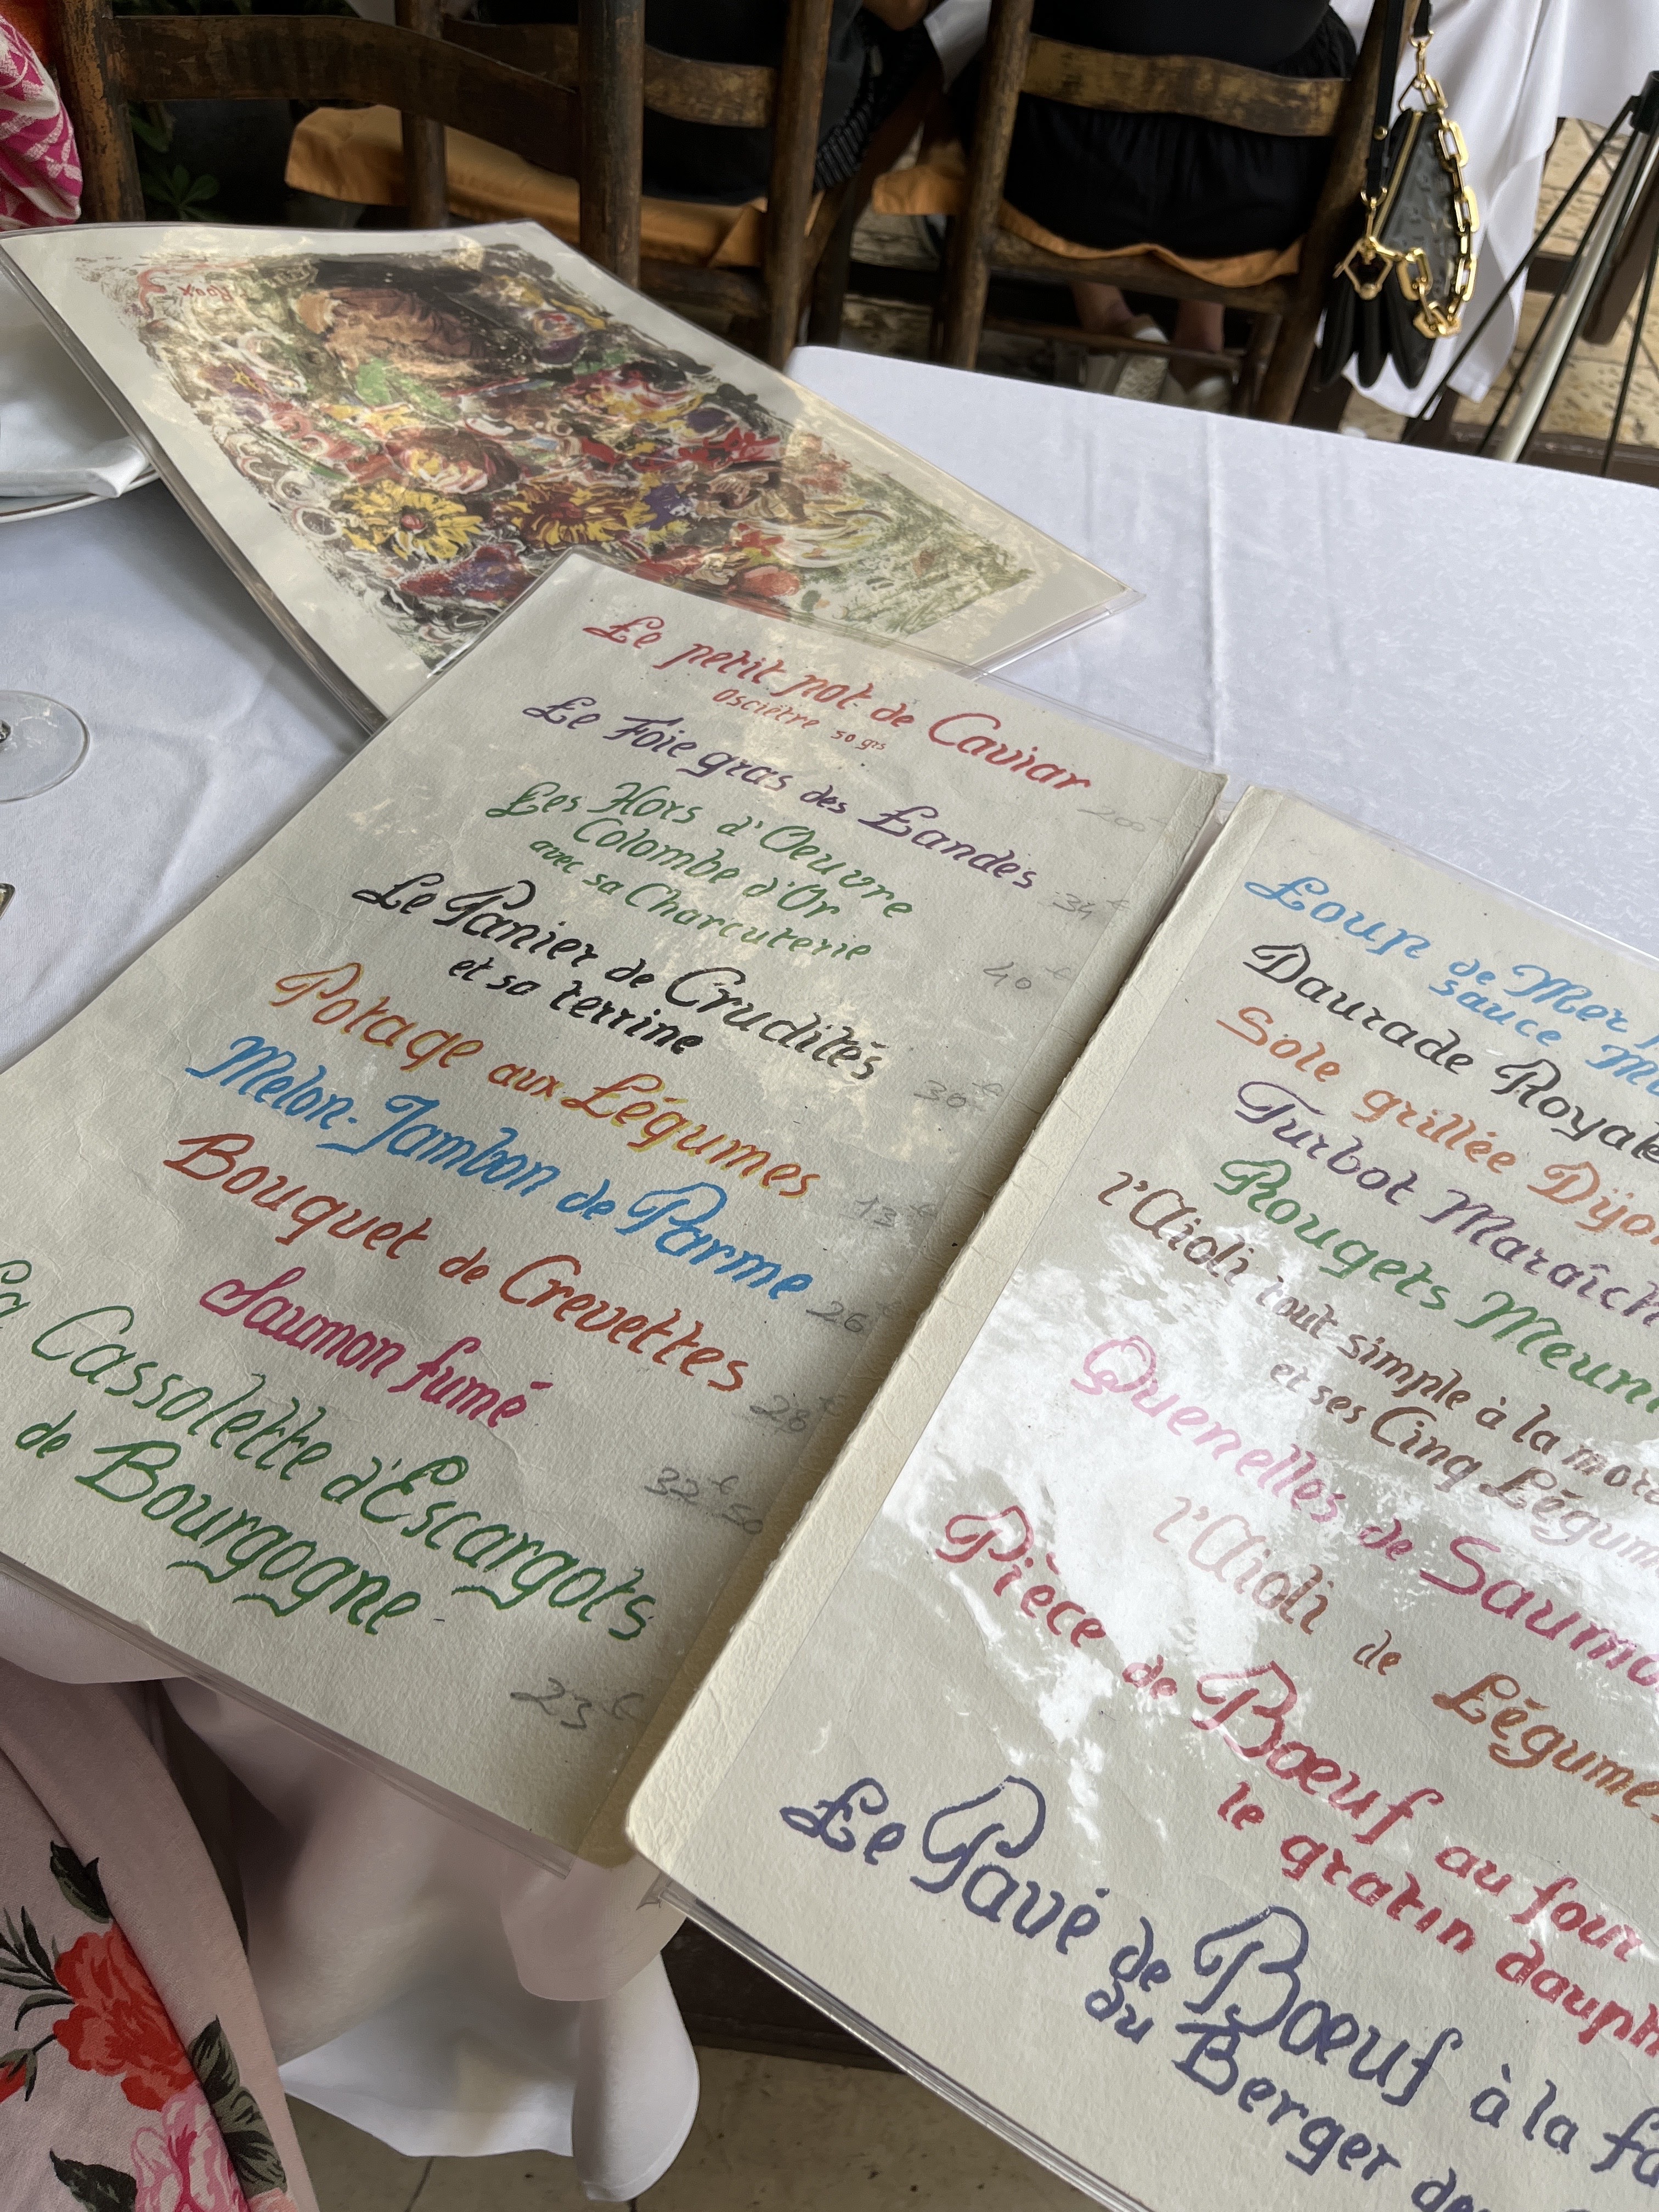 Roux
Le petit pot de Caviar
Osciètre 50 grs
200
Le Foie gras des Landes
34 €
Les Hors d'Oeuvre
Colombe d'Or
avec sa Charcuterie
40 €
Le Panier de Crudités
et sa terrine
30 €
Potage aux Légumes
13 €
Melon-Jambon de Parme
26 €
Bouquet de Crevettes
28 €
Saumon fumé
32 € 50
La Cassolette d'Escargots
de Bourgogne
23 €
Loup de Mer
sauce
Daurade Royale
Sole grillée
Turbot
Rougets
l'Aioli tout simple à la
et ses Cinq
Quenelles de
l'Aioli de
Pièce de Bœuf au four
le gratin
Le Pavé de Bœuf à la
du Berger